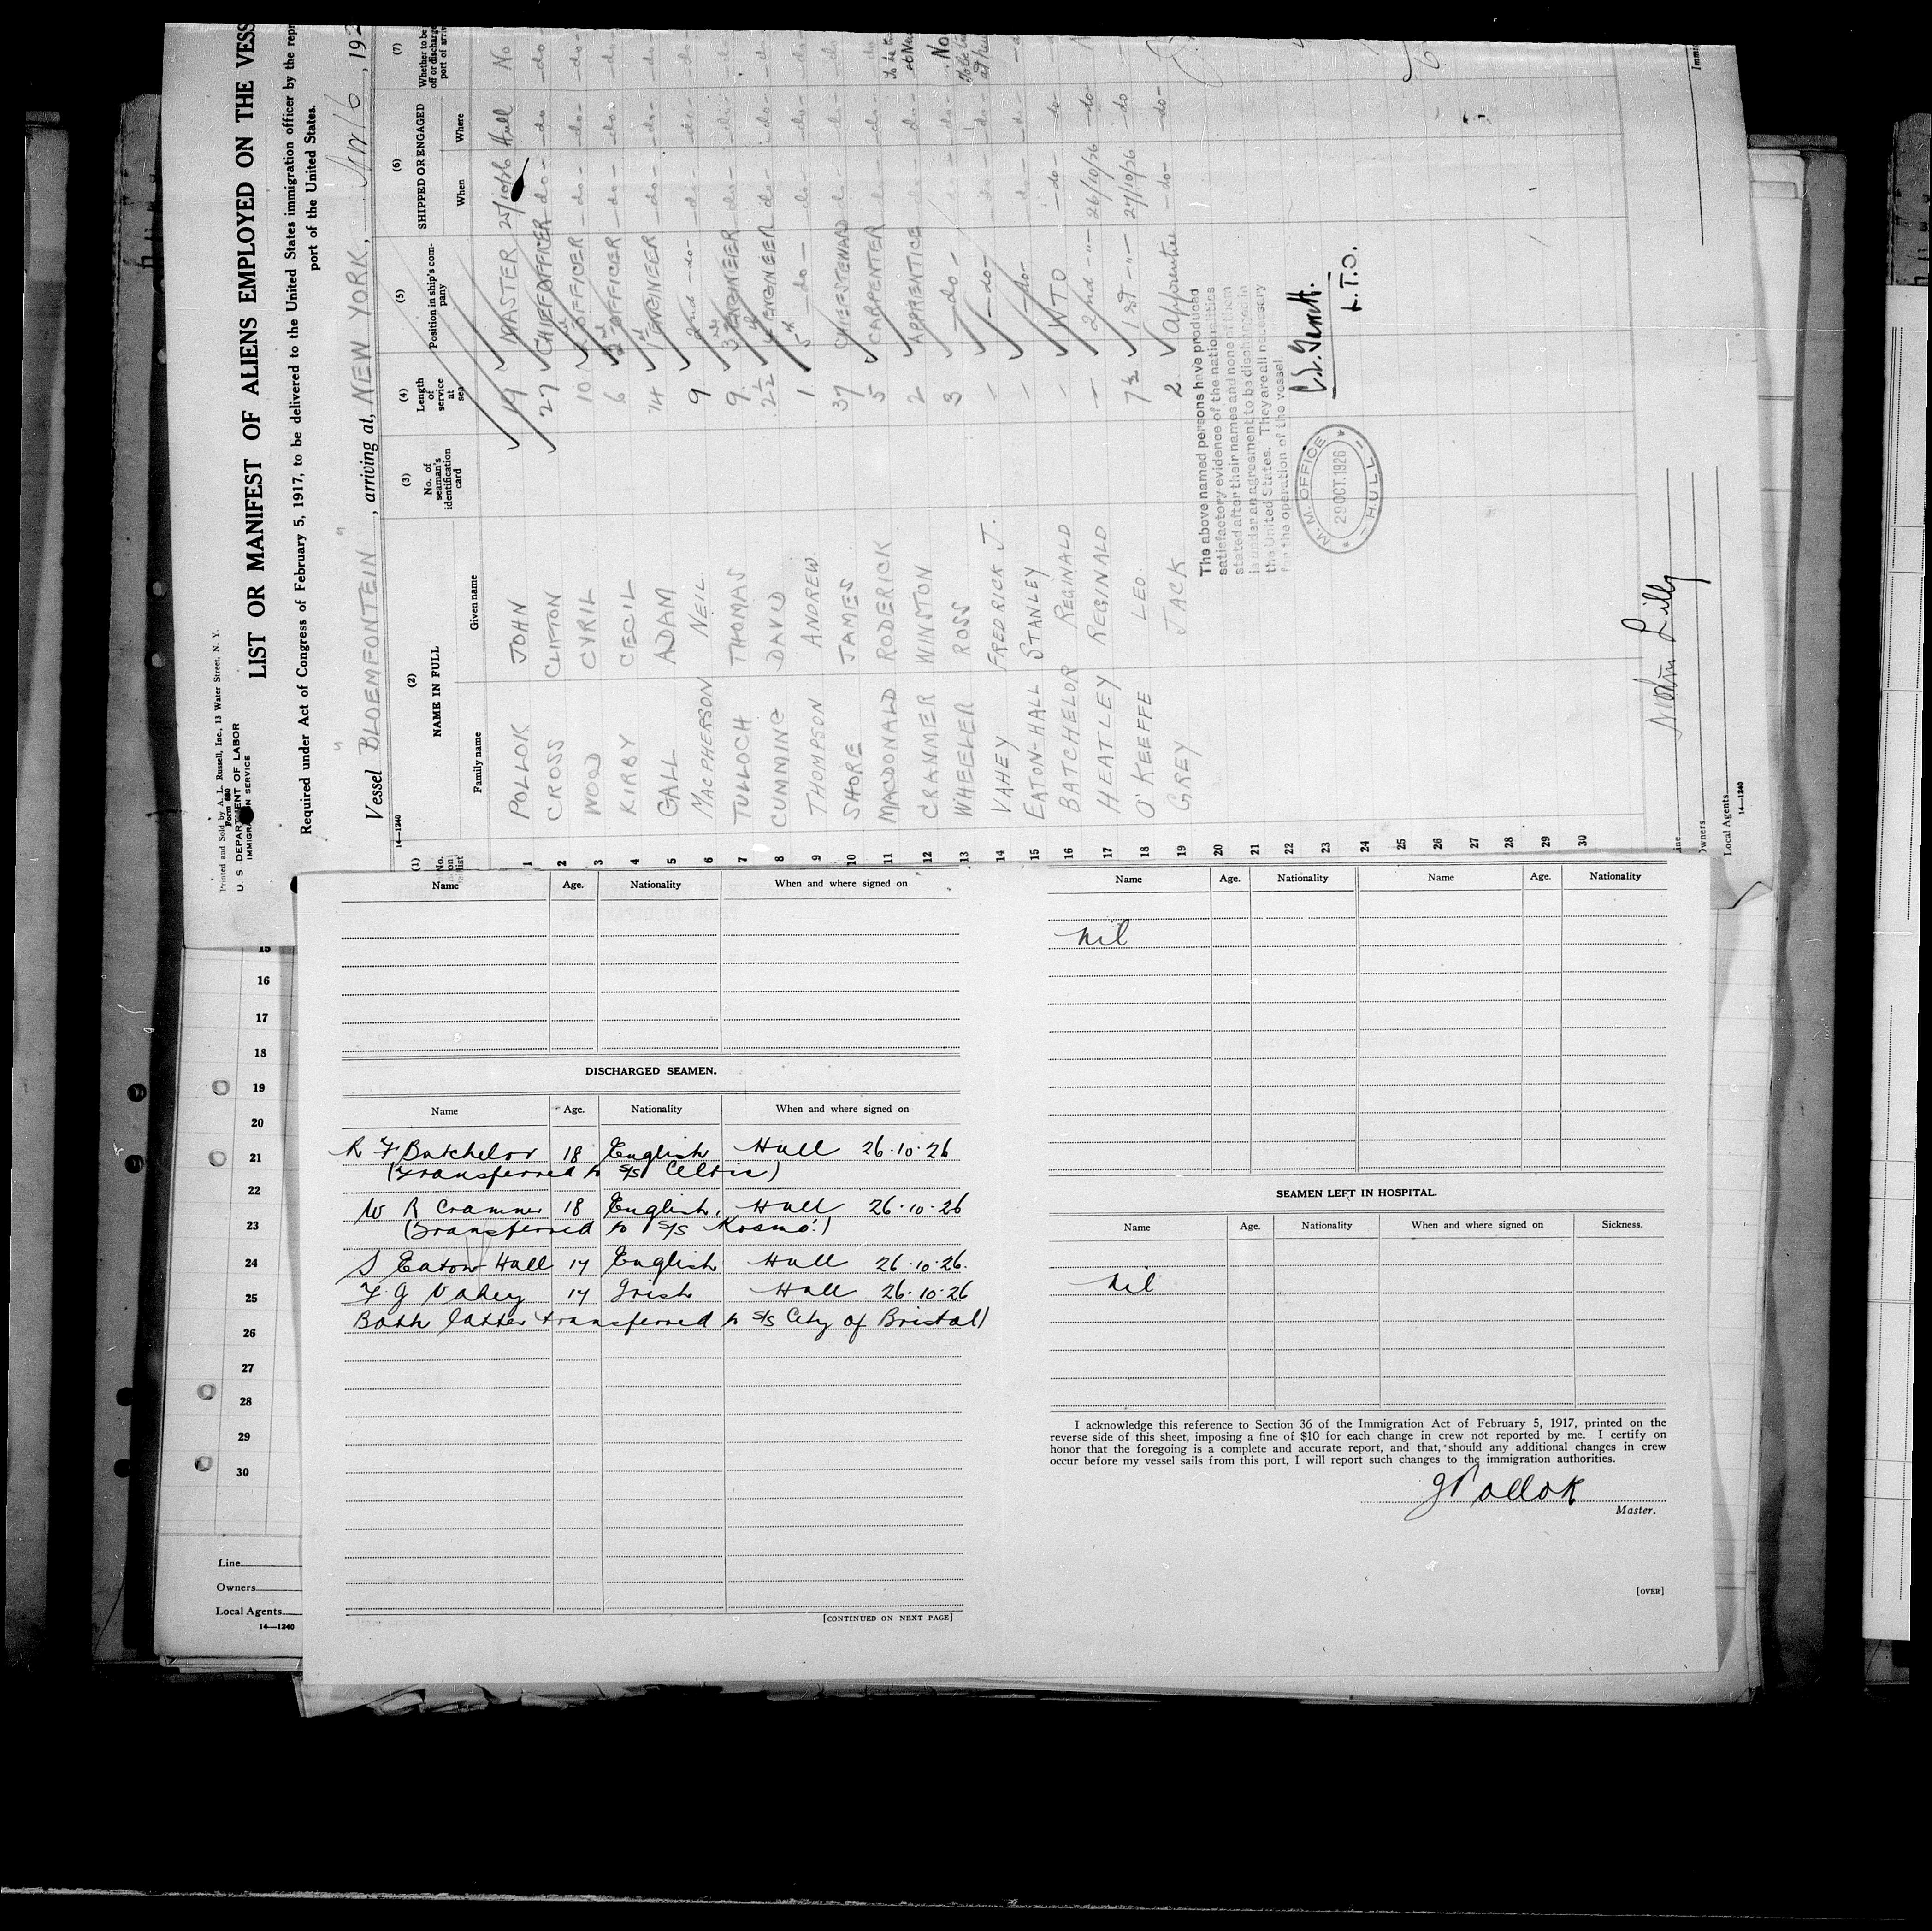 Printed and Sold by A. L. Russell, Inc., 13 Water Street, N. Y.
Form 680
U. S. DEPARTMENT OF LABOR
IMMIGRATION SERVICE
LIST OR MANIFEST OF ALIENS EMPLOYED ON THE VESS
Required under Act of Congress of February 5, 1917, to be delivered to the United States immigration officer by the repr
port of the United States.
Vessel " BLOEMFONTEIN ", arriving at, NEW YORK, 16, 192
14—1240
(1) (2) (3) (4) (5) (6) (7)
No. on list NAME IN FULL No. of seaman's identification card Length of service at sea Position in ship's company SHIPPED OR ENGAGED
Family name Given name When Where
1 POLLOK JOHN 19 MASTER 25/10/26 Hull No
2 CROSS CLIFTON 27 CHIEF OFFICER do - do - do -
3 WOOD CYRIL 10 OFFICER - do - - do - - do -
4 KIRBY CECIL 6 OFFICER - do - - do - - do -
5 GALL ADAM 14 1st ENGINEER - do - - do - - do -
6 MACPHERSON NEIL 9 2nd - do - - do - - do - - do -
7 TULLOCH THOMAS 9 3rd ENGINEER do - - do - - do -
8 CUMMING DAVID 2½ 4th ENGINEER do - - do - - do -
9 THOMPSON ANDREW 1 5th - do - - do - - do - - do -
10 SHORE JAMES 37 CHIEF STEWARD do - - do - - do
11 MACDONALD RODERICK 5 CARPENTER do - - do - - do
12 CRANMER WINTON 2 APPRENTICE do - - do -
13 WHEELER ROSS 3 - do - - do - No
14 VAHEY FREDRICK J. - - do - - do - - do -
15 EATON-HALL STANLEY - - do - - do - - do -
16 BATCHELOR REGINALD - WTO - do - - do -
17 HEATLEY REGINALD - 2nd - " - 26/10/26 - do -
18 O'KEEFFE LEO. 7½ 1st - " - 27/10/26 - do
19 GREY JACK 2 Apprentice - do - - do -
20
21
22
23
24
25
26
27
28
29
30
The above named persons have produced
satisfactory evidence of the nationalities
stated after their names and none of them
is under an agreement to be discharged in
the United States. They are all necessary
for the operation of the vessel.
L.T.O.
M.M. OFFICE
29 OCT. 1926
HULL
Owners
Local Agents
14—1240
Name Age. Nationality When and where signed on
DISCHARGED SEAMEN.
Name Age. Nationality When and where signed on
R F Batchelor 18 English Hull 26.10.26
(Transferred to s/s Celtic)
W R Cranmer 18 English. Hull 26.10.26
(Transferred to s/s Kosmo.)
S Eaton Hall 17 English Hull 26.10.26.
F. J Vahey 17 Irish Hull 26.10.26
Both latter transferred to s/s City of Bristol)
[CONTINUED ON NEXT PAGE]
Name Age. Nationality Name Age. Nationality
Nil
SEAMEN LEFT IN HOSPITAL.
Name Age. Nationality When and where signed on Sickness.
Nil
I acknowledge this reference to Section 36 of the Immigration Act of February 5, 1917, printed on the
reverse side of this sheet, imposing a fine of $10 for each change in crew not reported by me. I certify on
honor that the foregoing is a complete and accurate report, and that, should any additional changes in crew
occur before my vessel sails from this port, I will report such changes to the immigration authorities.
J Pollok
Master.
[OVER]
15
16
17
18
19
20
21
22
23
24
25
26
27
28
29
30
Line
Owners
Local Agents
14—1240